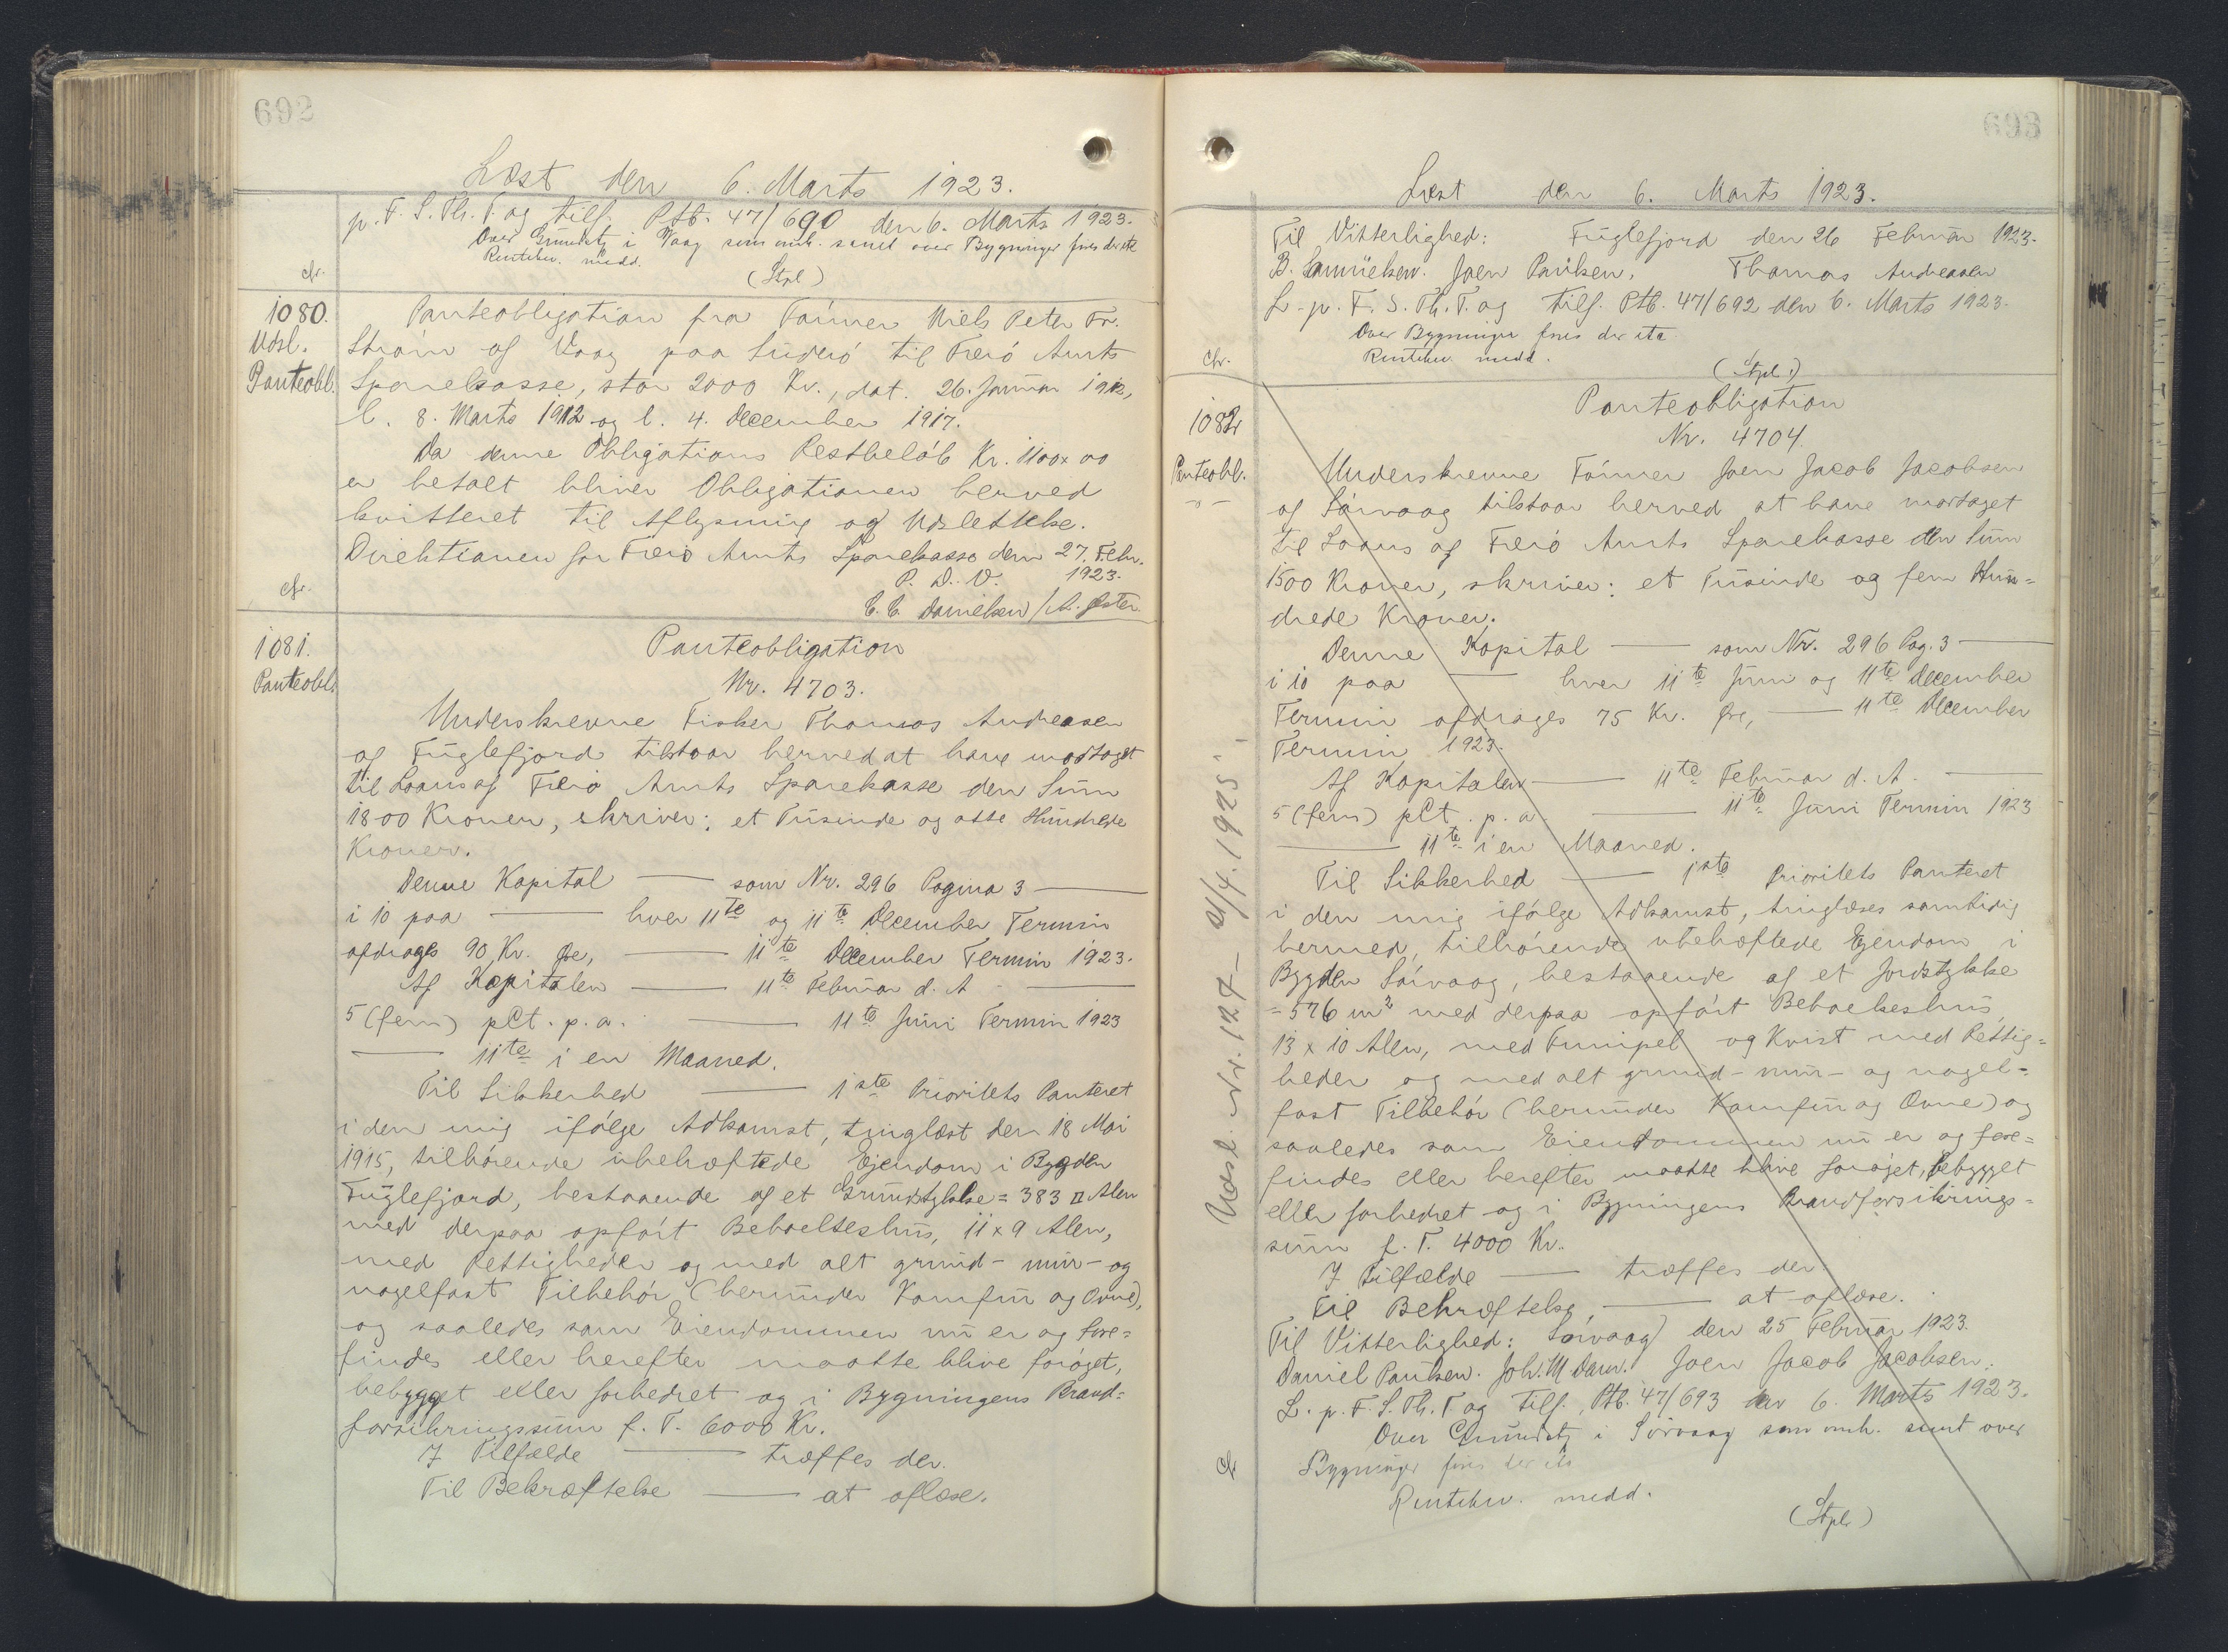 692
Læst den 6. Marts 1923.
p. F. S. Th. T. og tilf. Ptb. 47/690 den 6. Marts 1923.
Over Grundst. i Vaag som omh. samt over Bygninger fres der etc
Rentebev. medd.
(Stpl)
chr.
1080.
Udsl.
Panteobl.
Panteobligation fra Tömrer Niels Peter Fr.
Ström af Vaag paa Suderö til Færö Amts
Sparekasse, stor 2000 Kr., dat. 26. Januar 1912,
l. 8. Marts 1912 og l. 4. December 1917.
Da denne Obligations Restbelöb Kr. 1100 x 00
er betalt bliver Obligationen herved
kvitteret til Aflysning og Udslettelse.
Direktionen for Færö Amts Sparekasse den 27. Febr.
1923.
P. D. V.
C. C. Danielsen / A. Ester
chr.
1081.
Panteobl.
Panteobligation
Nr. 4703.
Underskrevne Fisker Thomas Andreasen
af Fuglefjord tilstaar herved at have modtaget
til Laans af Færö Amts Sparekasse den Sum
1800 Kroner, skriver: et Tusinde og otte Hundrede
Kroner.
Denne Kapital — som Nr. 296 Pagina 3 —
i 10 paa — hver 11te og 11te December Termin
afdrages 90 Kr. Øre, — 11te December Termin 1923.
Af Kapitalen — 11te Februar d. A —
5 (fem) pCt. p. a. — 11te Juni Termin 1923
— 11te i en Maaned.
Til Sikkerhed — 1ste Prioritets Panteret
i den mig ifölge Adkomst, tinglæst den 18 Mai
1915, tilhörende ubehæftede Ejendom i Bygden
Fuglefjord, bestaaende af et Grundstykke = 383 □ Alen
med derpaa opfört Beboelseshus, 11 x 9 Alen,
med Rettigheder og med alt grund- mur- og
nagelfast Tilbehör (herunder Komfur og Ovne),
og saaledes som Eiendommen nu er og fore=
findes eller herefter maatte blive foröget,
bebygget eller forbedret og i Bygningens Brand=
forsikringssum f. T. 6000 Kr.
I Tilfælde — træffes der.
Til Bekræftelse — at aflæse.
693
Læst den 6. Marts 1923.
Til Vitterlighed: Fuglefjord den 26 Februar 1923.
B. Samuelsen. Joen Paulsen. Thomas Andreasen
L. p. F. S. Th. T. og tilf. Ptb. 47/692 den 6. Marts 1923.
Over Bygninger fres der etc.
Rentebev. medd.
(Stpl.)
chr.
1082
Panteobl.
Panteobligation
Nr. 4704.
Underskrevne Tömrer Joen Jacob Jacobsen
af Sörvaag tilstaar herved at have modtaget
til Laans af Færö Amts Sparekasse den Sum
1500 Kroner, skriver: et Tusinde og fem Hun=
drede Kroner.
Denne Kapital — som Nr. 296 Pag. 3 —
i 10 paa — hver 11te Juni og 11te December
Termin afdrages 75 Kr. Øre, — 11te December
Termin 1923.
Af Kapitalen — 11te Februar d. A. —
5 (fem) pCt. p. a. — 11te Juni Termin 1923
— 11te i en Maaned.
Til Sikkerhed — 1ste Prioritets Panteret
i den mig ifölge Adkomst, tinglæses samtidig
hermed, tilhörende ubehæftede Ejendom i
Bygden Sörvaag, bestaaende af et Jordstykke
= 576 m² med derpaa opfört Beboelseshus,
13 x 10 Alen, med Frimipel og Kvist med Rettig=
heder og med alt grund- mur- og nagel=
fast Tilbehör (herunder Komfur og Ovne) og
saaledes som Eiendommen nu er og fore=
findes eller herefter maatte blive foröjet, bebygget
eller forbedret og i Bygningens Brandforsikrings=
sum f. T. 4000 Kr.
I Tilfælde — træffes der.
Til Bekræftelse, — at aflæse.
Til Vitterlighed: Sörvaag den 25 Februar 1923.
Daniel Paulsen. Joh. M Dam. Joen Jacob Jacobsen.
L. p. F. S. Th. T. og tilf. Ptb. 47/693 den 6. Marts 1923.
Over Grundst. i Sörvaag som omh. samt over
Bygninger fres der etc
Rentebev. medd.
(Stpl)
Udsl. Nr. 127 – 21/4. 1925.